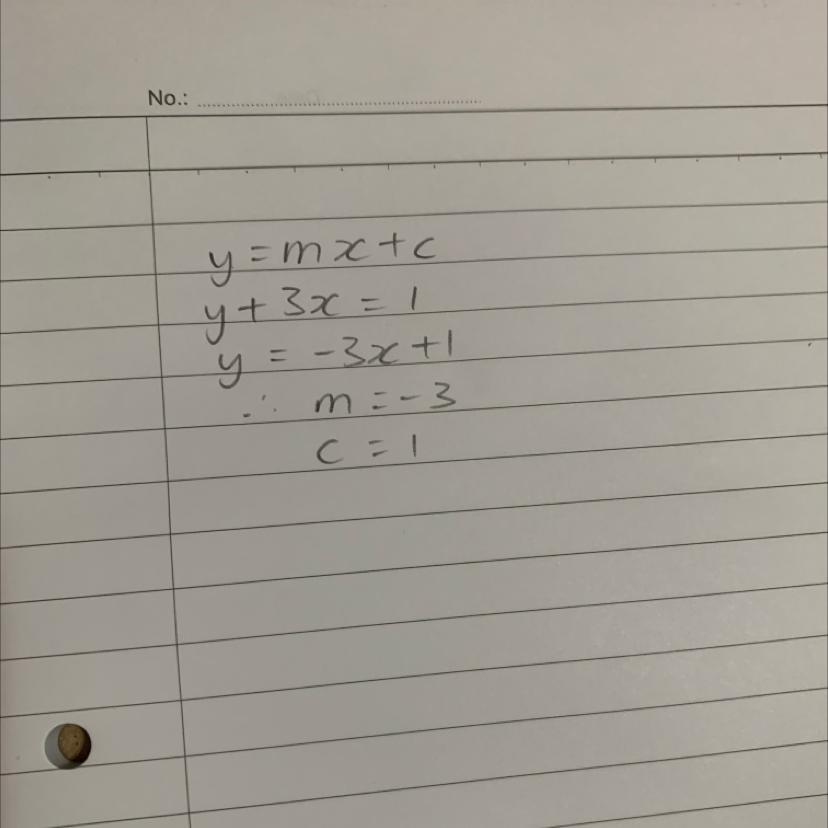 No.:
y = mx + c
y + 3x = 1
y = -3x + 1
∴ m = -3
c = 1